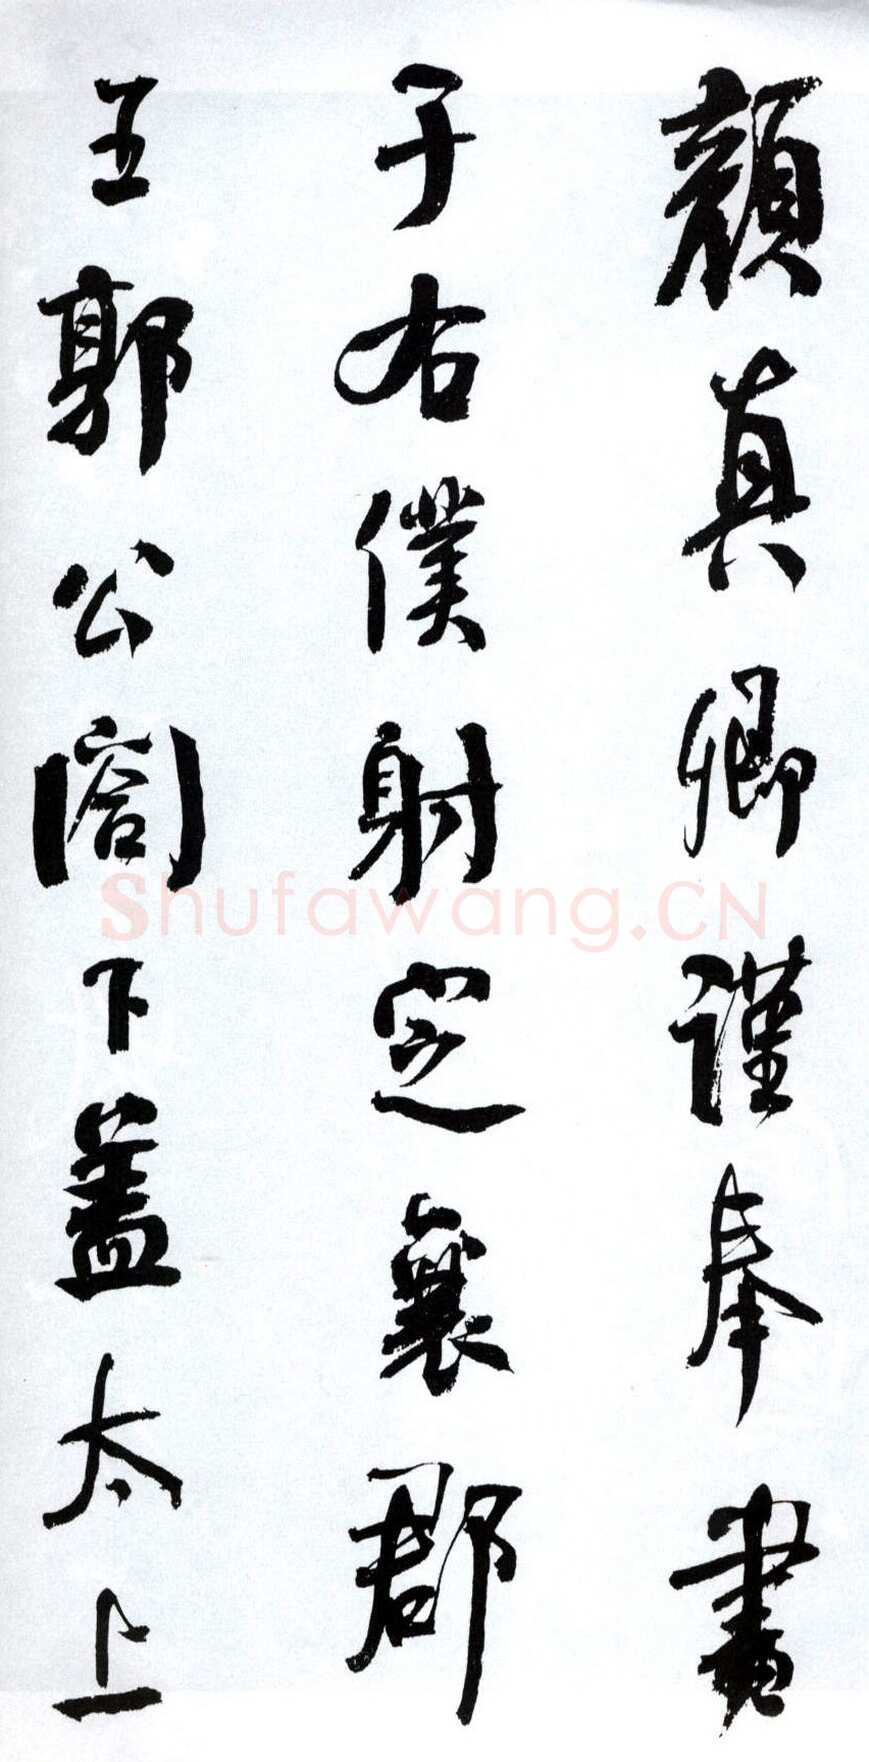 顏真卿謹奉書
于右僕射定襄郡
王郭公閤下蓋太上
Shufawang.CN